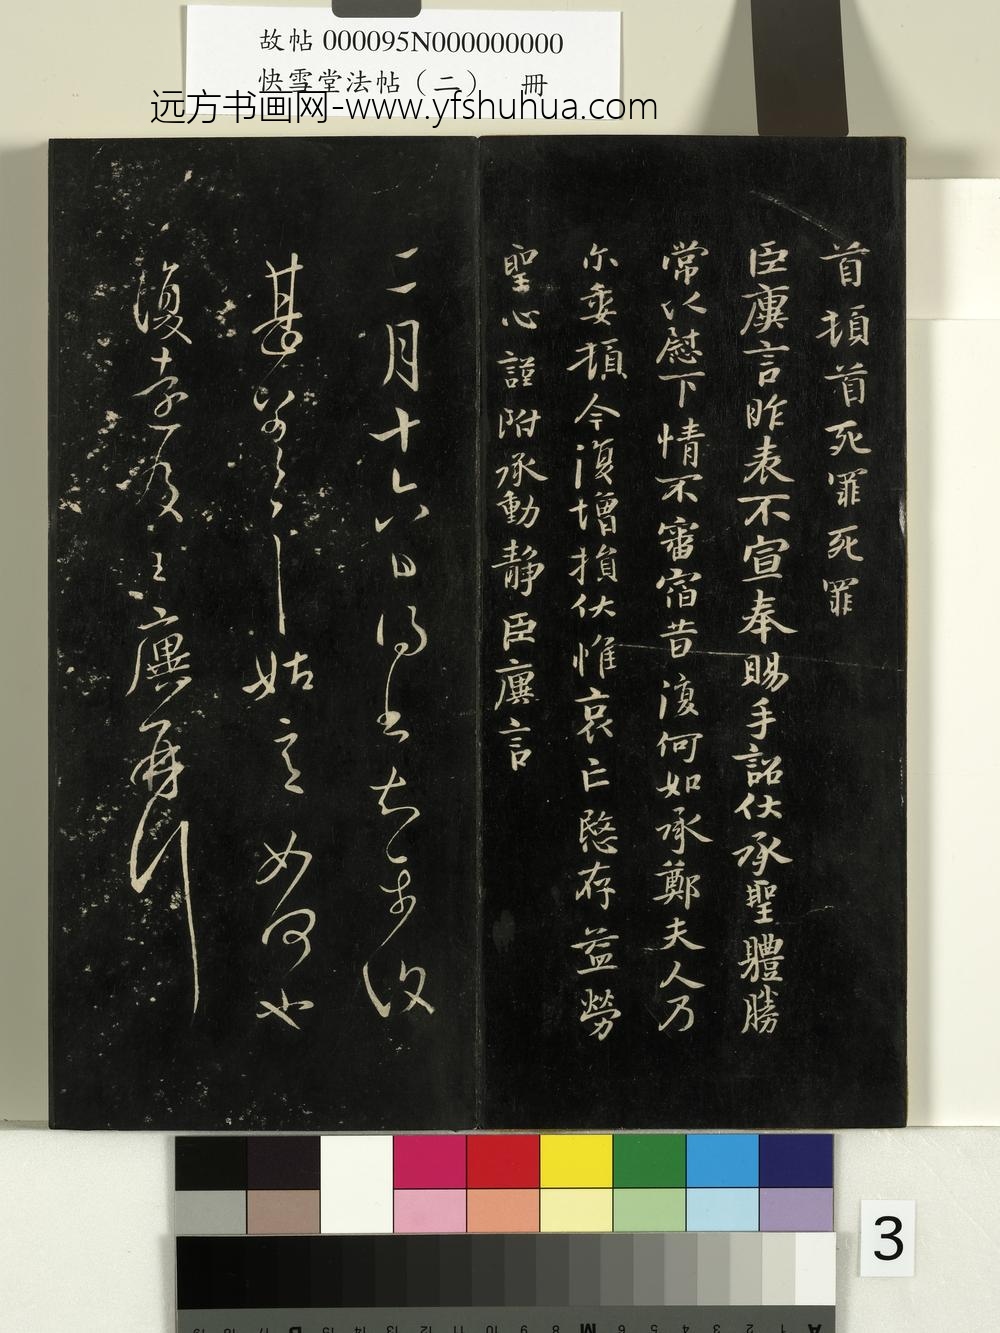 故帖 000095N000000000
快雪堂法帖（二） 冊
远方书画网-www.yfshuhua.com
首頓首死罪死罪
臣廙言昨表不宣奉賜手詔伏承聖體勝
常以慰下情不審宿昔復何如承鄭夫人乃
尒委頓今復增損伏惟哀亡愍存益勞
聖心謹附承動靜臣廙言
二月十六日
姑
如何也
復 王廙再
3